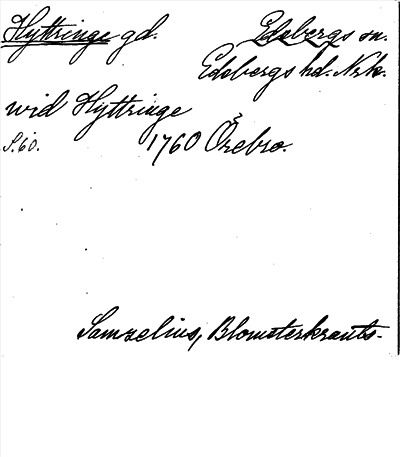 Hyttringe gd. Edsbergs sn.
Edsbergs hd. Nrk.
wid Hyttringe
S. 60. 1760 Örebro.
Samzelius, Blomsterkrants-